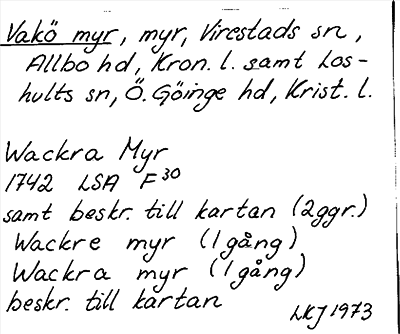 Vakö myr, myr, Virestads sn,
Allbo hd, Kron. l. samt Los-
hults sn, Ö. Göinge hd, Krist. l.
Wackra Myr
1742 LSA F30
samt beskr. till kartan (2ggr.)
Wackre myr (1 gång)
Wackra myr (1 gång)
beskr. till kartan
LKJ 1973